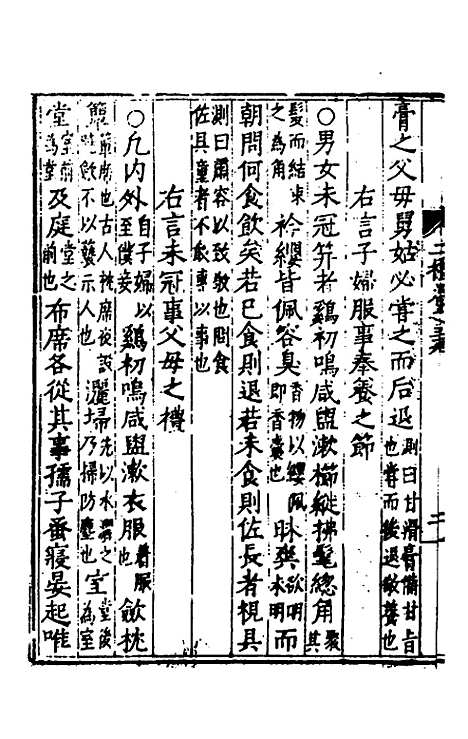 膏之父母舅姑必嘗之而后退測曰甘滑膏備甘旨也嘗而後退敬養也
右言子婦服事奉養之節
○男女未冠笄者鷄初鳴咸盥漱櫛縰拂髦總角聚其
髮而結束之為角衿纓皆佩容臭香物以纓佩即香囊也昧爽欲明未明而
朝問何食飲矣若已食則退若未食則佐長者視具
測曰肅容以致敬也問食佐具童者不敢專以事也
右言未冠事父母之禮
○凡内外自子婦以至僕妾鷄初鳴咸盥漱衣服着服也歛枕
簟簟席也古人枕席夜設曉歛不以褻示人也灑掃先以水灑之乃掃防塵也室堂後為室
堂室前為堂及庭堂之前也布席各從其事孺子蚤寢晏起唯